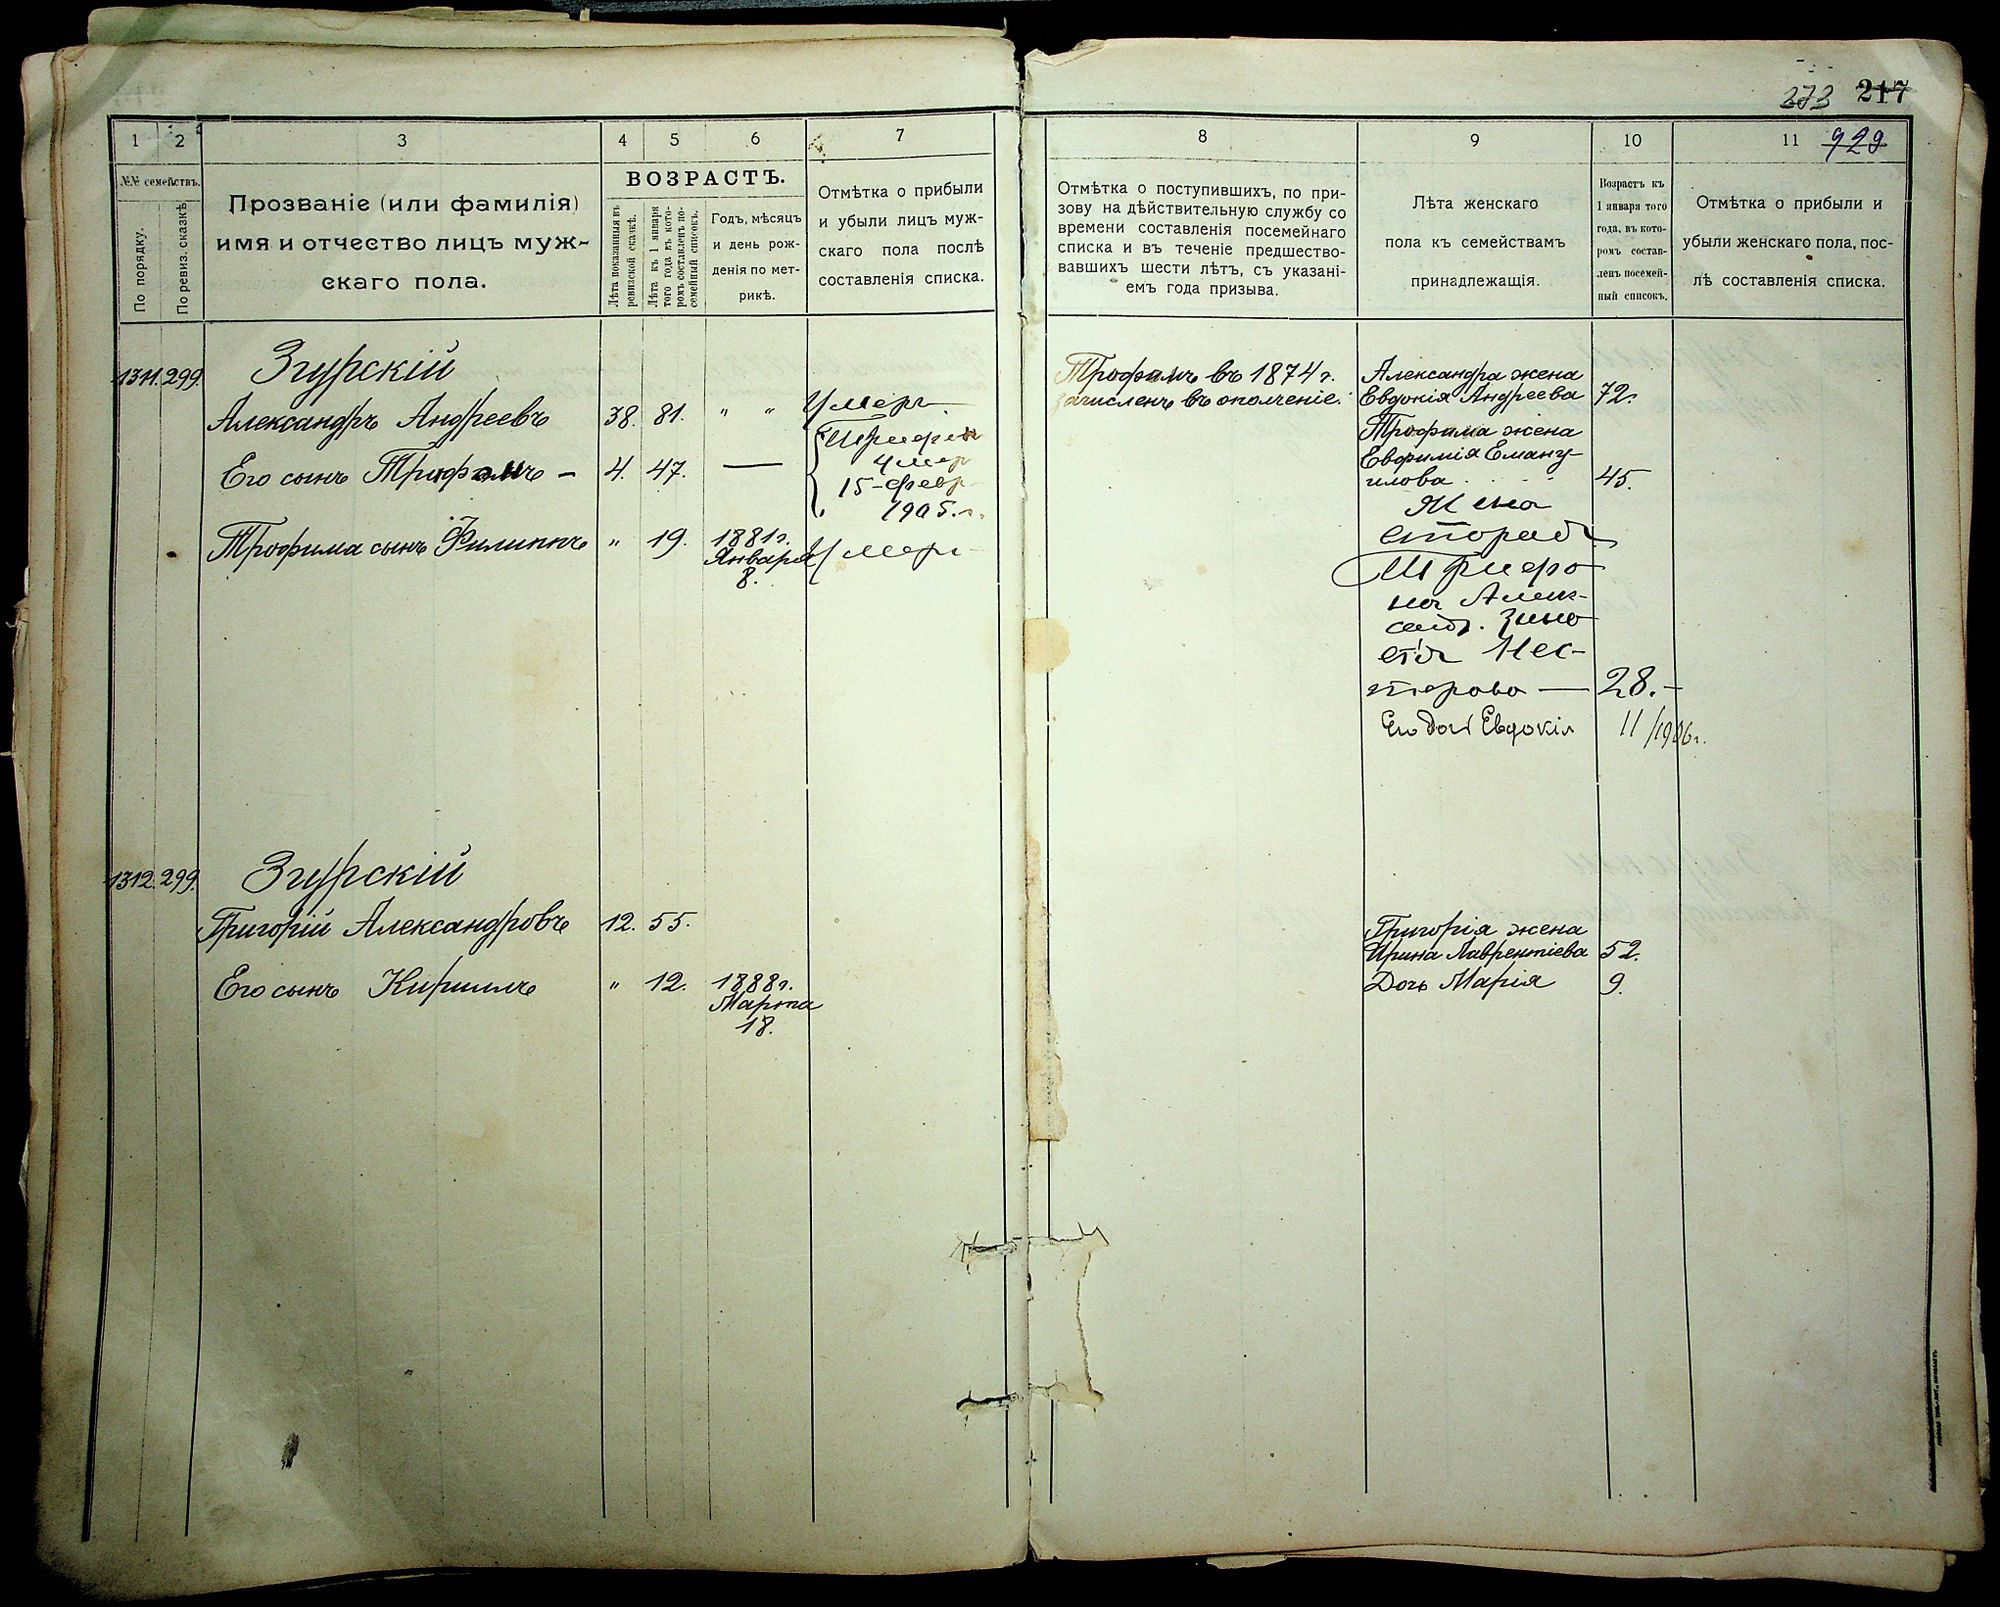 273 217
1
2
3
4
5
6
7
№№ семействъ.
По порядку.
По ревиз. сказкѣ
Прозваніе (или фамилія)
имя и отчество лицъ муж-
скаго пола.
ВОЗРАСТЪ.
Лѣта показанныя въ
ревизской сказкѣ.
Лѣта къ 1 января
того года въ кото-
ромъ составленъ по-
семейный списокъ.
Годъ, мѣсяцъ
и день рож-
денія по мет-
рикѣ.
Отмѣтка о прибыли
и убыли лицъ муж-
скаго пола послѣ
составленія списка.
1311. 299. Згурскій
Александръ Андреевъ 38. 81. " " Умеръ
Его сынъ Трофимъ — 4. 47. —
Умер
15 февр
1905. г.
Трофима сынъ Филиппъ " 19. 1881г.
Января
8.
Умеръ
1312. 299. Згурскій
Григорій Александровъ 12. 55.
Его сынъ Кириллъ " 12. 1888г.
Марта
18.
8
9
10
11 929
Отмѣтка о поступившихъ, по при-
зову на дѣйствительную службу со
времени составленія посемейнаго
списка и въ теченіе предшество-
вавшихъ шести лѣтъ, съ указані-
емъ года призыва.
Лѣта женскаго
пола къ семействамъ
принадлежащія.
Возрастъ къ
1 января того
года, въ кото-
ромъ состав-
ленъ посемей-
ный списокъ.
Отмѣтка о прибыли и
убыли женскаго пола, пос-
лѣ составленія списка.
Трофимъ въ 1874 г.
зачисленъ въ ополченіе.
Александра жена
Евдокія Андреева 72.
Трофима жена
Евфимія Еману-
илова 45.
Жена
втораа
Трифо
на Алек-
санд. Зино
вія Нес-
терова — 28. —
Его дочь Евдокія 11/1906г.
Григорія жена
Ирина Лаврентіева 52.
Дочь Марія 9.